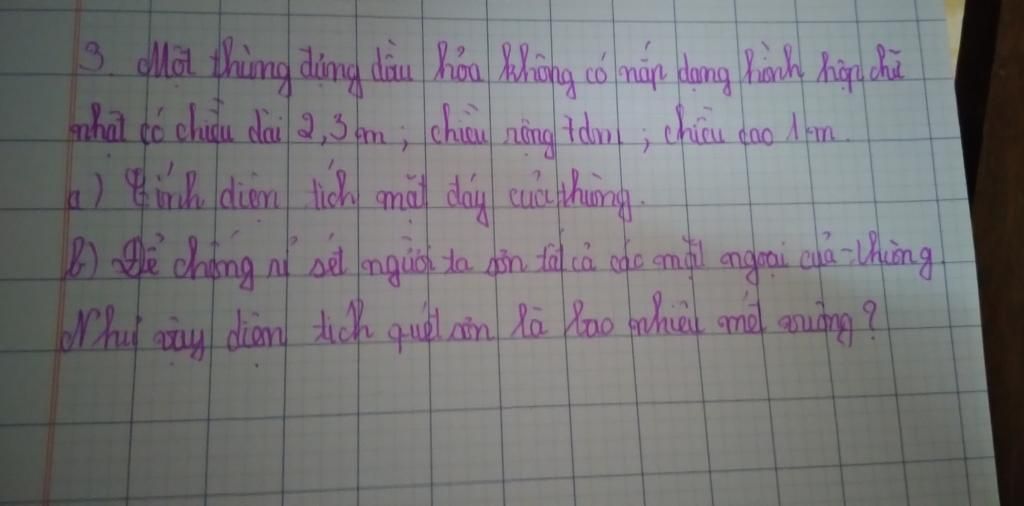 3. Một thùng đựng dầu hỏa không có nắp dạng hình hộp chữ
nhật có chiều dài 2,3m; chiều rộng 7dm; chiều cao 1m.
a) Tính diện tích mặt đáy của thùng.
b) Để chống rỉ sét người ta sơn tất cả các mặt ngoài của thùng
Như vậy diện tích quét sơn là bao nhiêu mét vuông?